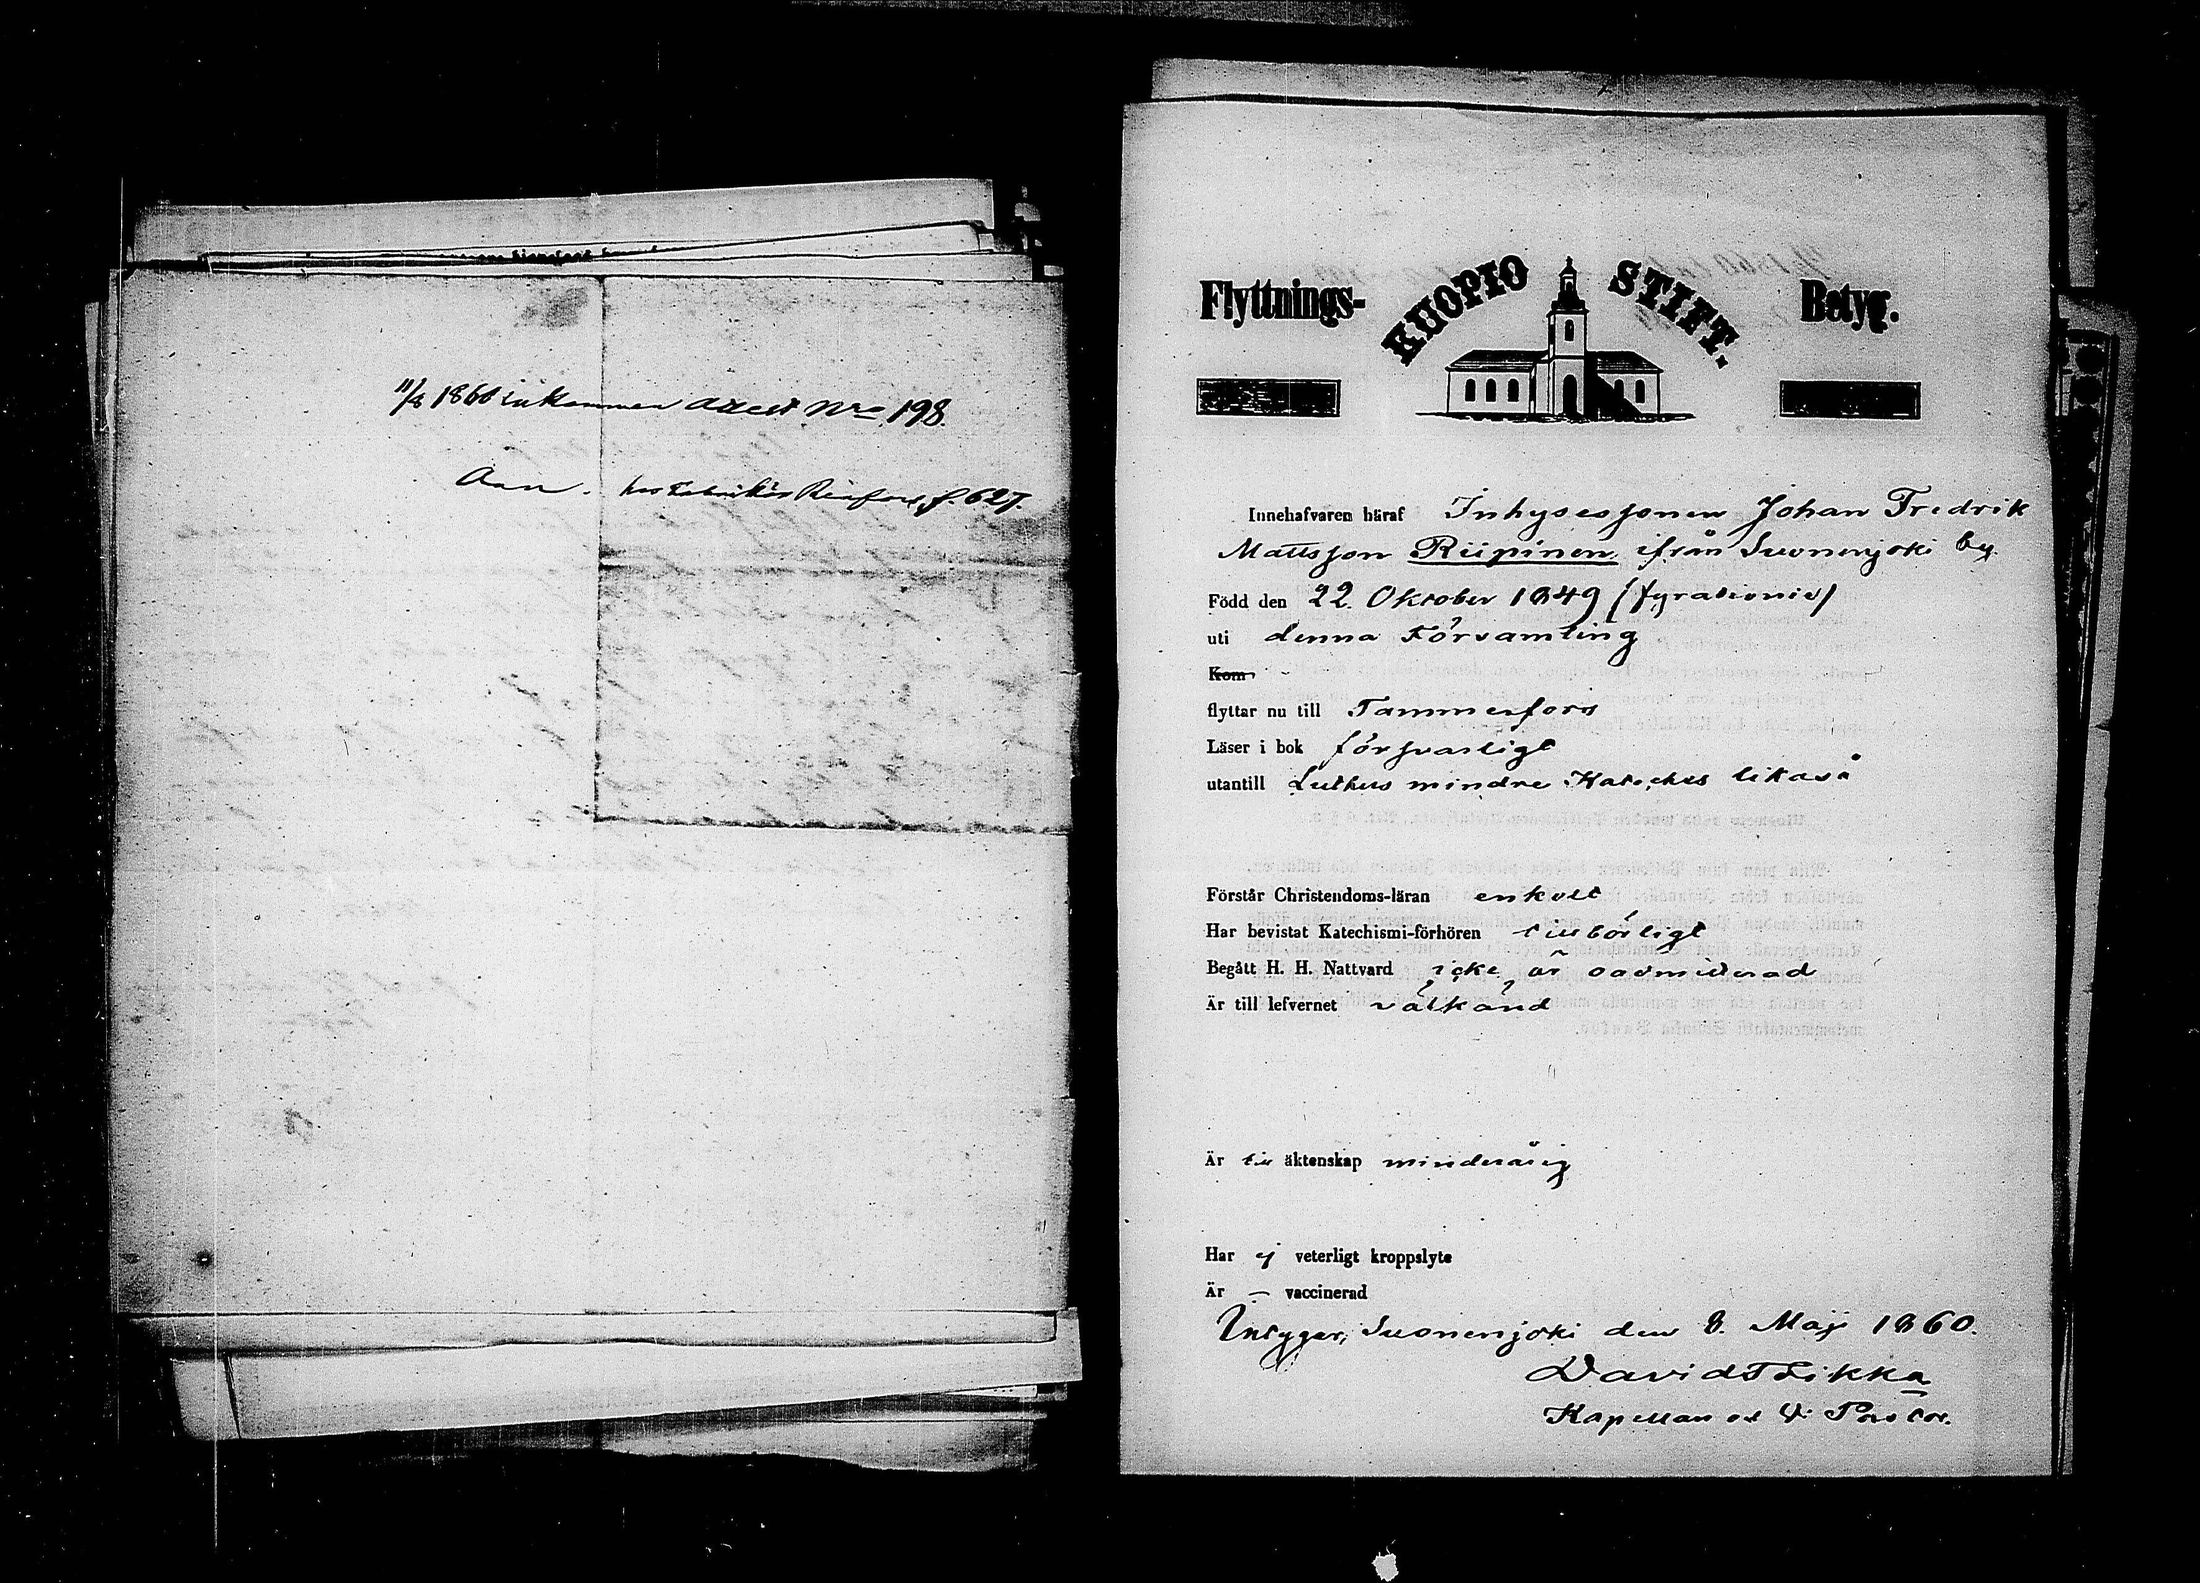 11/8 1860 inkommen attest Nro 198.
Ann. hos Fabrikör f. 627.
Flyttnings- KUOPIO STIFT. Betyg.
Innehafvaren häraf Inhysessonen Johan Fredrik
Mattsson Riipinen ifrån Suonenjoki by.
Född den 22. Oktober 1849 (fyrationio)
uti denna Församling
Kom
flyttar nu till Tammerfors
Läser i bok försvarligt
utantill Luthers mindre Kateches likaså
Förstår Christendoms-läran enkelt
Har bevistat Katechismi-förhören tillbörligt
Begått H. H. Nattvard icke, är oadmitterad
Är till lefvernet välkänd
Är till äktenskap minderårig
Har ej veterligt kroppslyte
Är — vaccinerad
Intygar, Suonenjoki den 8. Maj 1860.
David Flikka
Kapellan och V: Pastor.